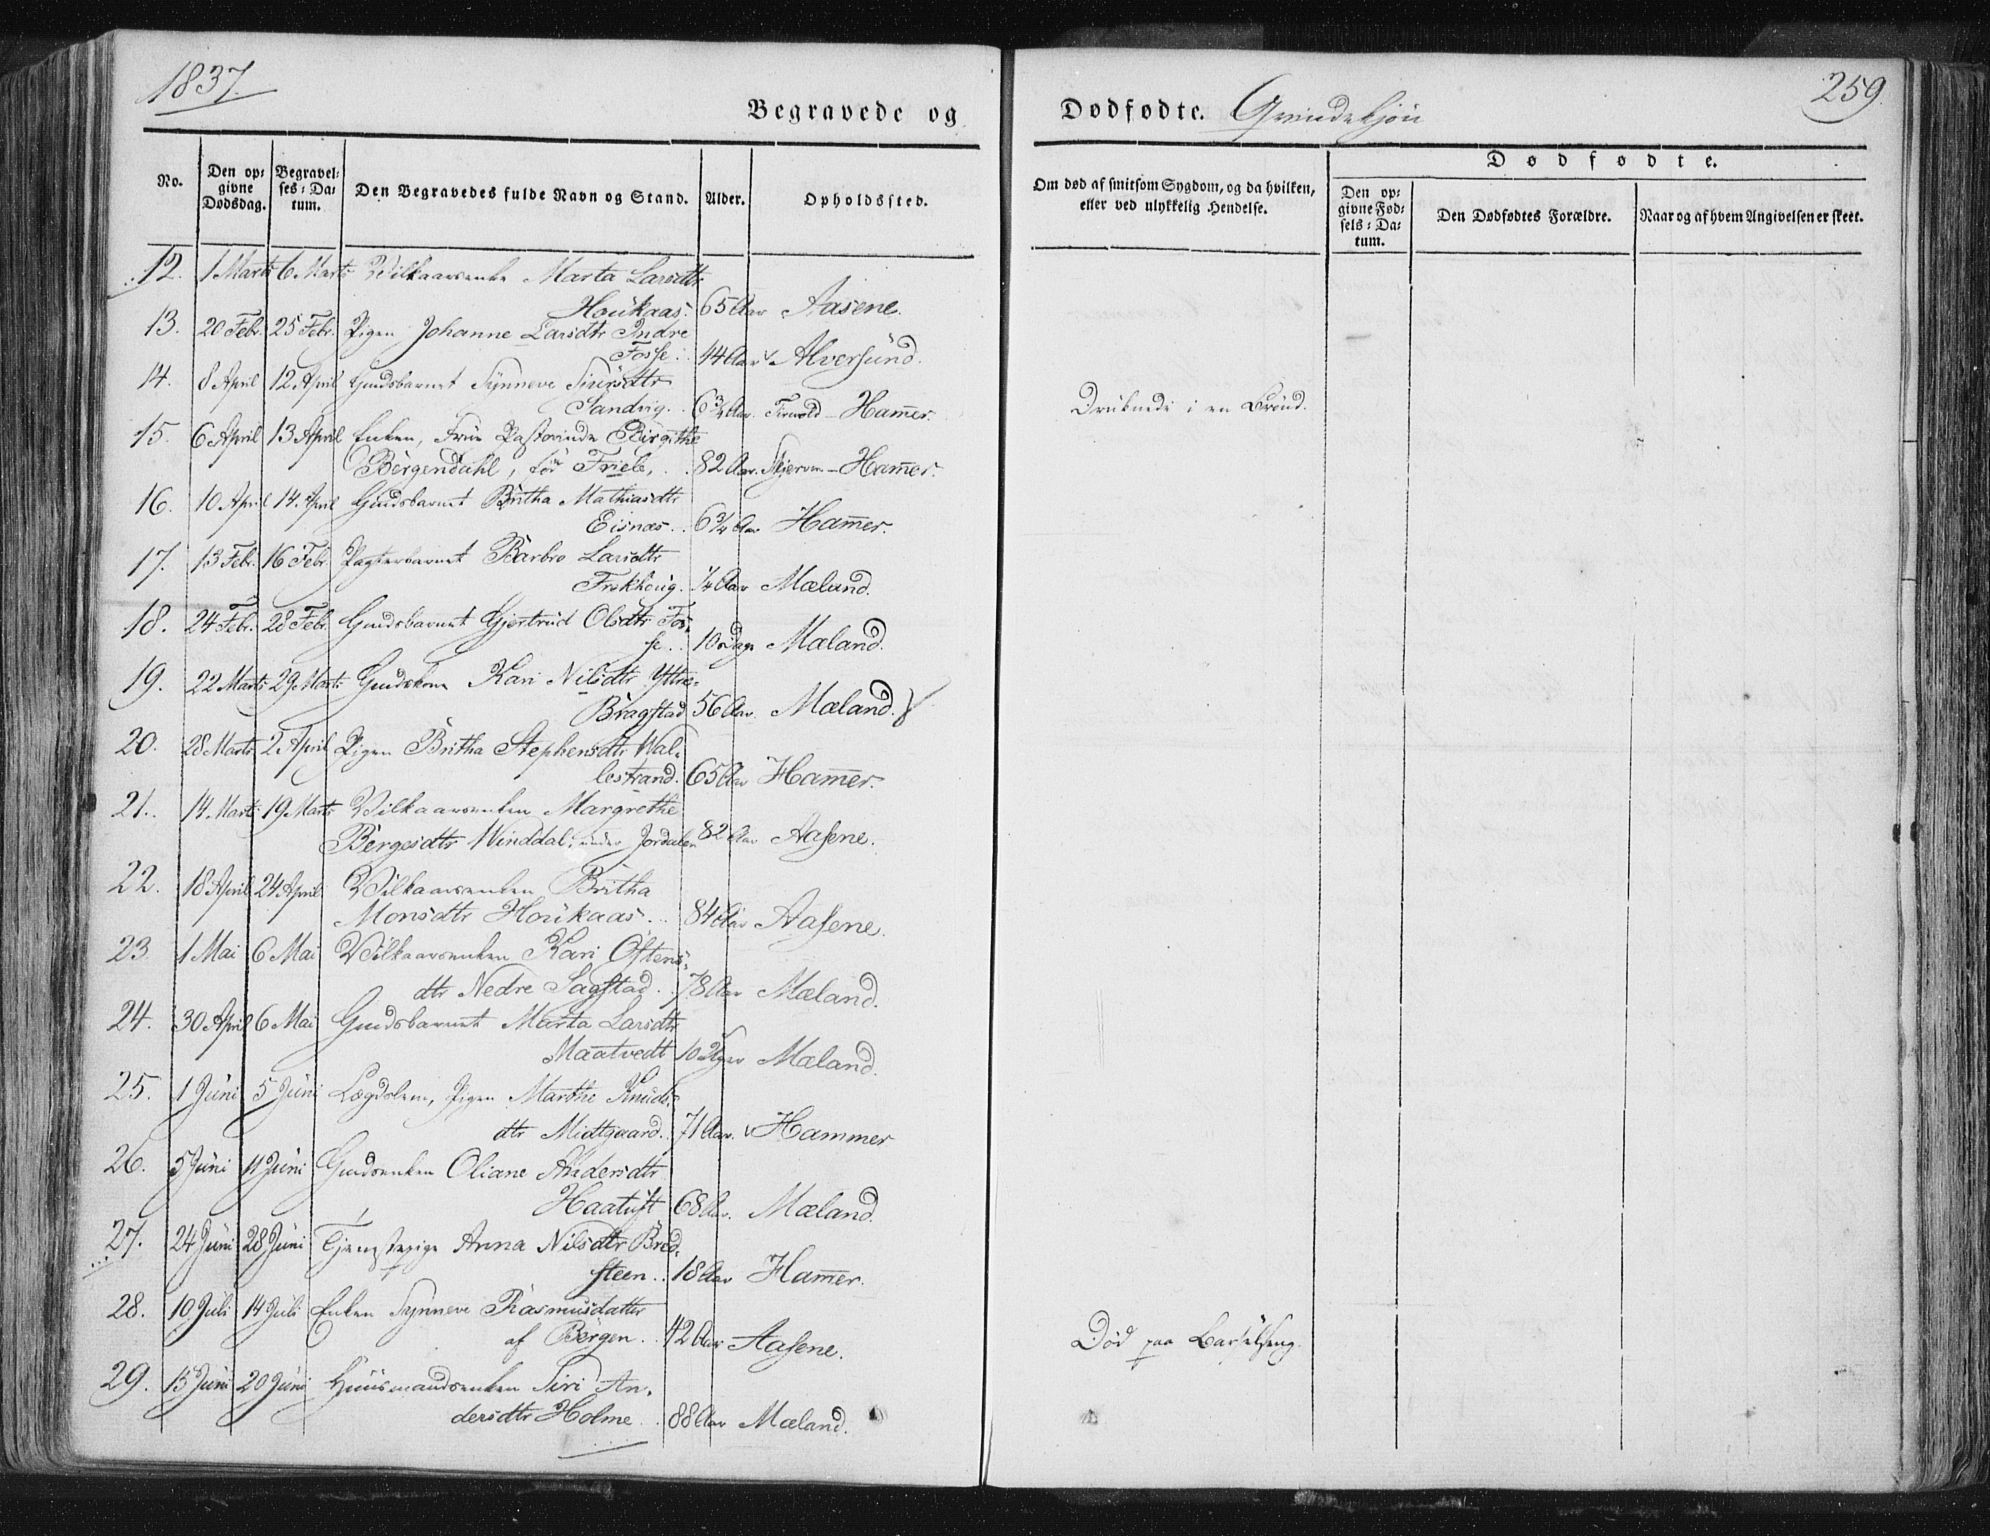 1837.
Begravede og
Dødfødte. Qvindekjön
259.
No.
Den op-
givne
Dødsdag.
Begravel-
ses-Da-
tum.
Den Begravedes fulde Navn og Stand.
Alder.
Opholdssted.
Om død af smitsom Sygdom, og da hvilken,
eller ved ulykkelig Hendelse.
Dødfødte.
Den op-
givne Fød-
sels-Da-
tum.
Den Dødfødtes Forældre.
Naar og af hvem Angivelsen er skeet.
12. 1 Marts 6 Marts Vilkaarsenke Marta Larsdtr
Houkaas. 65 Aar Aasene.
13. 20 Febr. 25 Febr. Pigen Johanne Larsdtr Indre
Fosse. 44 Aar Alversund.
14. 8 April 12 April Gaudsbarnet Synneve Siursdtr
Sandvig. 6 3/4 Aar. Hamer.
Druknede i en Brönd.
15. 6 April 13 April Enken, Frue Pastorinde Birgithe
Bergendahl, för Friele, 82 Aar. Hamer.
16. 10 April 14. April Gaudsbarnet Britha Mathiasdtr
Eisnæs. 6 3/4 Aar Hamer.
17. 13 Febr. 16 Febr Pagterbarnet Barbro Larsdtr
1/4 Aar Mæland.
18. 24 Febr. 28 Febr. Gaudsbarnet Gjertrud Olsdtr Fos-
se. 10 Dage Mæland.
19. 22 Marts 29 Marts Gaudskone Kari Nilsdtr Yttre-
Bragstad 56 Aar. Mæland.
20. 28 Marts 2 April Pigen Britha Stephensdtr Wal-
lestrand. 65 Aar Hamer.
21. 14 Marts 19 Marts Vilkaarsenken Margrethe
Börgesdtr Winddal, under Jordalen 82 Aar Aasene.
22. 18 April 24 April Vilkaarsenken Britha
Monsdtr Houkaas. 84 Aar Aasene.
23 1 Mai 6 Mai Vilkaarsenken Kari Ostens-
dtr Nedre Sagstad. 78 Aar Mæland.
24. 30 April 6 Mai Gaudsbarnet Marta Larsdtr
Maatvedt 10 Uger Mæland.
25. 1 Juni 5 Juni Lægdslem, Pigen Marthe Knuds-
dtr Midtgaard. 71 Aar. Hammer
26. 5 Juni 11 Juni Gaudsenken Oliane Andersdtr
Haatuft 68 Aar. Mæland.
27. 24 Juni 28 Juni Tjenestepige Anna Nilsdtr Bred-
steen. 18 Aar Hamer.
28. 10 Juli 14 Juli Enken Synneve Rasmusdatter
af Bergen. 42 Aar Aasene.
Död paa Barselseng.
29. 15 Juni 20 Juni Huusmandsenken Siri An-
dersdtr Holme. 88 Aar Mæland.